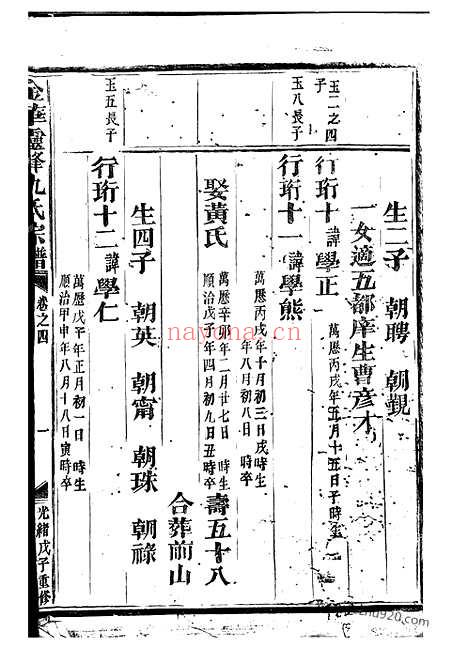 生二子 朝聘 朝覲
一女適五都庠生曹彥才
玉二之四子
行珩十 諱學正 萬曆丙戌年五月十五日子時生
玉八長子
行珩十一 諱學熊 萬曆丙戌年十月初三日戌時生
年八月初八日 時卒
娶黃氏 萬曆辛卯年二月廿七日 時生
順治戊子年四月初九日丑時卒 壽五十八
合葬前山
生四子 朝英 朝甯 朝珠 朝祿
玉五長子
行珩十二 諱學仁 萬曆戊子年正月初一日 時生
順治甲申年八月十八日寅時卒
金華靈峰九氏宗譜
卷之四
一
光緒戊子重修
nayona.cn
zhu920.com